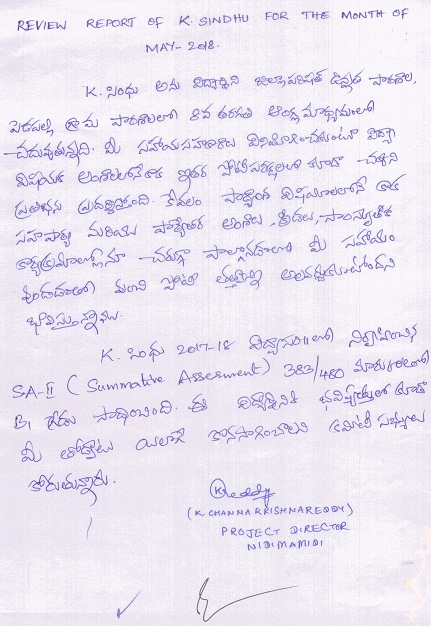 REVIEW REPORT OF K. SINDHU FOR THE MONTH OF
MAY-2018.
K. సింధు అను విద్యార్థిని జిల్లాపరిషత్ ఉన్నత పాఠశాల,
పెదపల్లి పాఠశాలలో 8వ తరగతి ఆంధ్ర మాధ్యమంలో
చదువుతున్నది. మీ సహాయసహకారాలు వినియోగించుకుంటూ విద్యా
విషయక అంశాలలోనేకాక ఇతర పోటీపరీక్షలలో కూడా చక్కని
ప్రతిభను ప్రదర్శిస్తుంది. కేవలం పాఠ్యాంశ విషయాలలోనే కాక
సహపాఠ్య మరియు పాఠ్యేతర అంశాలు, క్రీడలు, సాంస్కృతిక
కార్యక్రమాల్లోనూ చురుగ్గా పాల్గొనడాలలో మీ సహాయం
వుండడంతో మంచి పోటీ తత్వాన్ని అలవర్చుకుంటోందని
భావిస్తున్నాను.
K. సింధు 2017-18 విద్యాసం॥లో నిర్వహించిన
SA-II (Summative Assessment) 383/480 మార్కులతో
B1 గ్రేడు సాధించింది. ఈ విద్యార్థినికి భవిష్యత్తులో కూడా
మీ తోడ్పాటు యిలాగే కొనసాగించాలని కమిటీ సభ్యులు
కోరుతున్నారు.
(K CHANNAKRISHNAREDDY)
PROJECT DIRECTOR
NIDIMAMIDI